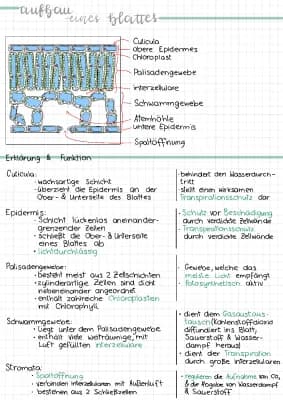 aufbau
eines Blattes
Cuticula
obere Epidermis
Chloroplast
Palisadengewebe
Interzellulare
Schwammgewebe
Atemhöhle
untere Epidermis
Spaltöffnung
Erklärung & Funktion
Cuticula:
· wachsartige Schicht
· überzieht die Epidermis an der
Ober- & Unterseite des Blattes
· behindert den Wasserdurch-
tritt
· stellt einen wirksamen
Transpirationsschutz dar
Epidermis:
· Schicht lückenlos aneinander-
grenzender Zellen
· schließt die Ober- & Unterseite
eines Blattes ab
· lichtdurchlässig
· Schutz vor Beschädigung
durch verdickte Zellwände
· Transpirationsschutz
durch verdickte Zellwände
Palisadengewebe:
· besteht meist aus 2 Zellschichten
· zylinderartige Zellen sind dicht
nebeneinander angeordnet
· enthält zahlreiche Chloroplasten
mit Chlorophyll
· Gewebe, welche das
meiste Licht empfängt
· fotosynthetisch aktiv
Schwammgewebe:
· liegt unter dem Palisadengewebe
· enthält viele weiträumige, mit
Luft gefüllten Interzellulare
· dient dem Gasaustaus-
tausch (Kohlenstoffdioxid
diffundiert ins Blatt,
Sauerstoff & Wasser-
dampf heraus)
· dient der Transpiration
durch große Interzellularen
Stromata:
· Spaltöffnung
· verbinden Interzellularen mit Außenluft
· bestehen aus 2 Schließzellen
· regulieren die Aufnahme von CO₂
& die Abgabe von Wasserdampf
& Sauerstoff